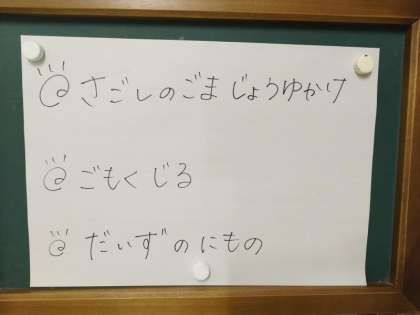 @ さごしのごまじょうゆかけ
@ ごもくじる
@ だいずのにもの